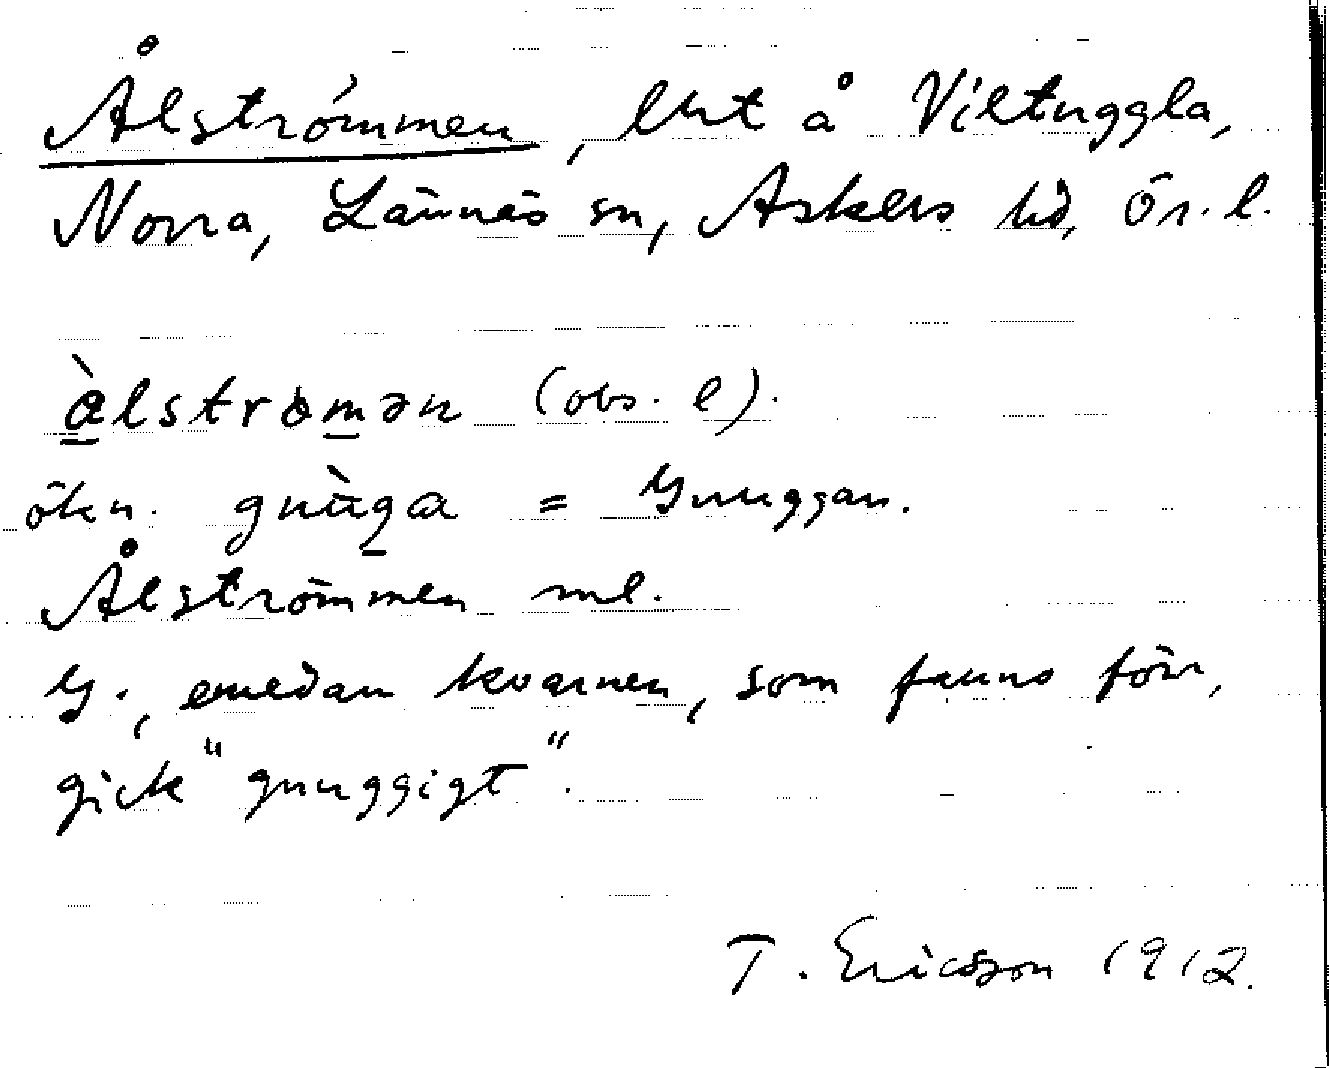 Ålströmmen, lht å Viltuggla,
Norra, Lännäs sn, Askers hd, Ör. l.
àlstrømən (obs. l).
ökn. gnùga = Gnuggan.
Ålströmmen ml.
G., emedan kvarnen, som fanns förr,
gick "gnuggigt".
T. Ericsson 1912.